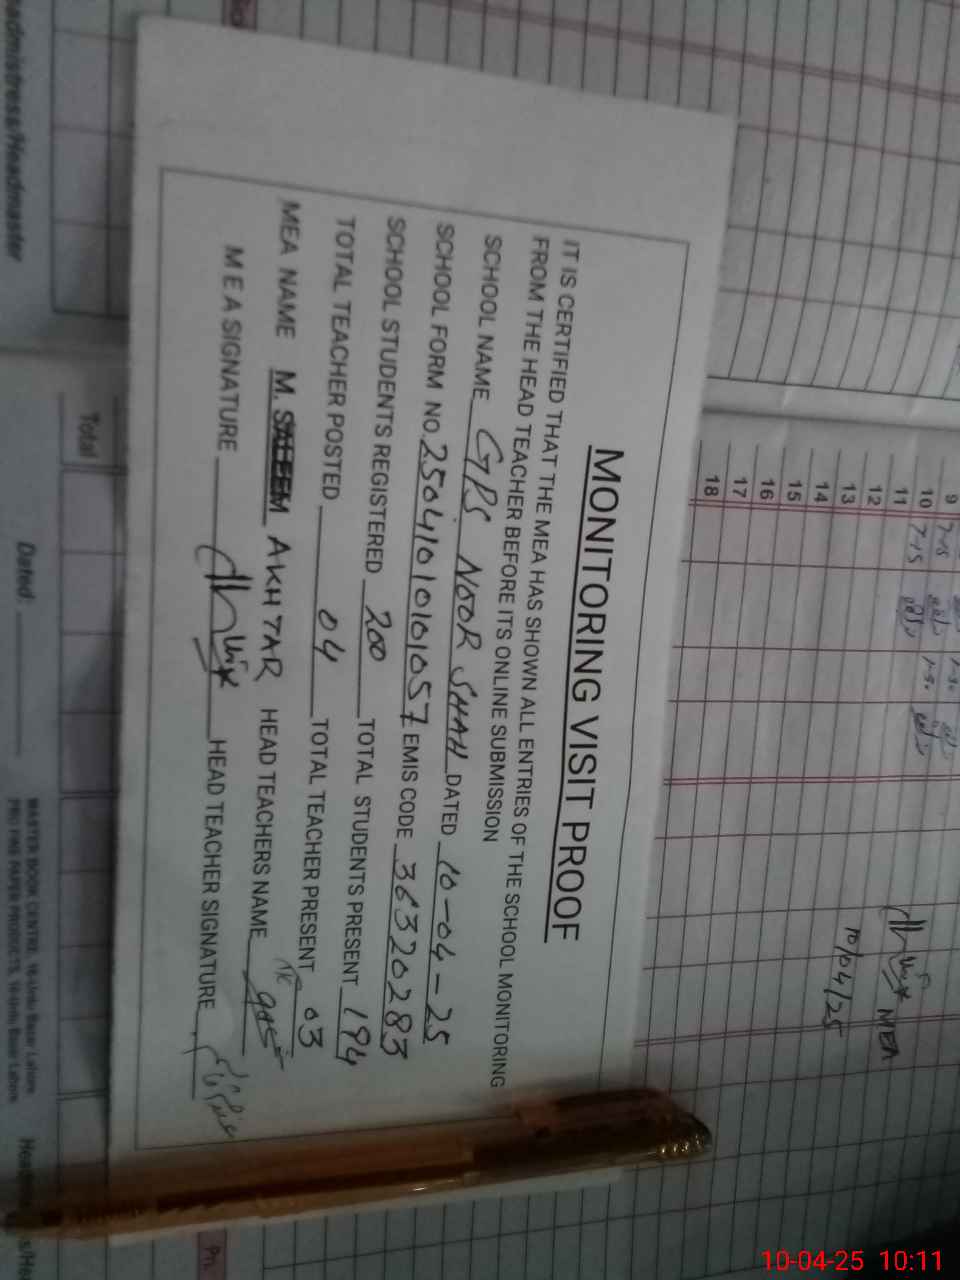 MONITORING VISIT PROOF
IT IS CERTIFIED THAT THE MEA HAS SHOWN ALL ENTRIES OF THE SCHOOL MONITORING
FROM THE HEAD TEACHER BEFORE ITS ONLINE SUBMISSION
SCHOOL NAME GPS NOOR SHAH DATED 10-04-25
SCHOOL FORM NO. 2504101010101057 EMIS CODE 36320283
SCHOOL STUDENTS REGISTERED 200 TOTAL STUDENTS PRESENT 194
TOTAL TEACHER POSTED 04 TOTAL TEACHER PRESENT 03
MEA NAME M. SALEEM AKHTAR HEAD TEACHERS NAME
MEA SIGNATURE HEAD TEACHER SIGNATURE
9 7-15
10 7-15
11
12
13
14
15
16
17
18
MEA
10/04/25
Headmistress/Headmaster
Total
Dated:
MASTER BOOK CENTRE, 16-Urdu Bazar Lahore
Ph.
10-04-25 10:11